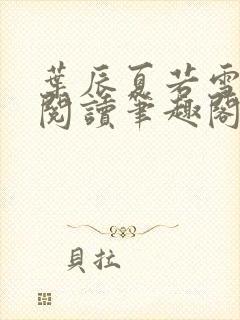 葉辰夏若雪
閱讀筆趣閣
貝拉